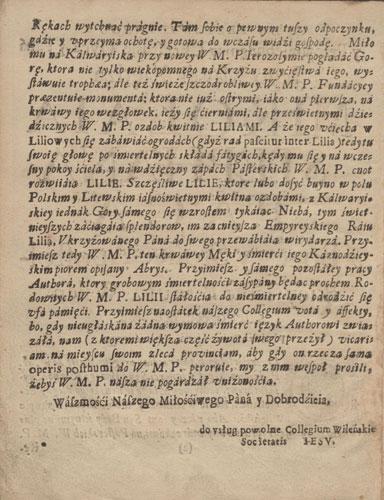 Rękách wytchnąć prágnie. Tám sobie o pewnym tuszy odpoczynku,
gdzie y vprzeyma ochotę, y gotową do wczásu widźi gospodę. Miło
mu ná Kálwáryiską przy nowey W. M. P. Ierozolymie poglądáć Go-
rę, ktora nie tylko wiekopomnego ná Krzyżu zwyćięstwá iego, wy-
stáwuie trophæa; ále też świeże szczodrobliwey W. M. P. Fundácyey
prezentuie monumentá: ktora nie iuż ostrymi, iáko oná pierwsza, ná
krwáwy iego wezgłowek, ieży się ćierniámi, ále prześwietnymi dźie-
dźicznych W. M. P. ozdob kwitnie LILIAMI. A że iego vćiechá w
Liliowych się zábáwiáć ogrodách (gdyż rad pascitur inter Lilia) tedy tu
swoię głowę po śmiertelnych składa fátygách, kędy mu się y ná wcze-
sny pokoy śćiele, y ná wdźięczny zápách Pásterskich W. M. P. cnot
rozwiiáią LILIE. Szczęśliwe LILIE, ktore lubo dosyć buyno w polu
Polskim y Litewskim iásnoświetnymi kwitną ozdobámi, z Kálwáryi-
skiey iednák Gory sámego się wzrostem tykáiąc Niebá, tym świet-
nieyszych záćiągáią splendorow, im zacnieysza Empyreyskiego Ráiu
Lilia, Vkrzyżowánego Páná do swego przewabiáłá wirydarzá. Przy-
imiesz tedy W. M. P. ten krwáwey Męki y śmierći iego Káznodźiey-
skim piorem opisány Abrys. Przyimiesz y sámego pozostáłey pracy
Authorá, ktory grobowym śmiertelnośći zásypány będąc prochem Ro-
dowitych W. M. P. LILII stáłośćią do nieśmiertelney odrodźić się
vfa pámięći. Przyimiesz ná ostátek nászego Collegium votá y affekty,
bo, gdy nieugłáskána żádną wymową śmierć ięzyk Authorowi zwią-
záłá, nam (z ktoremi większą część żywotá swego przeżył) vicari-
am ná mieyscu swoim zleca provinciam, aby gdy on rzeczą sámą
operis posthumi do W. M. P. peroruie, my z nim wespoł prośili,
żebyś W. M. P. nászą nie pogárdzał vniżonośćią.
Wászmośći Nászego Miłośćiwego Páná y Dobrodźieiá,
do vsług powolne Collegium Wileńskie
Societatis IESV.